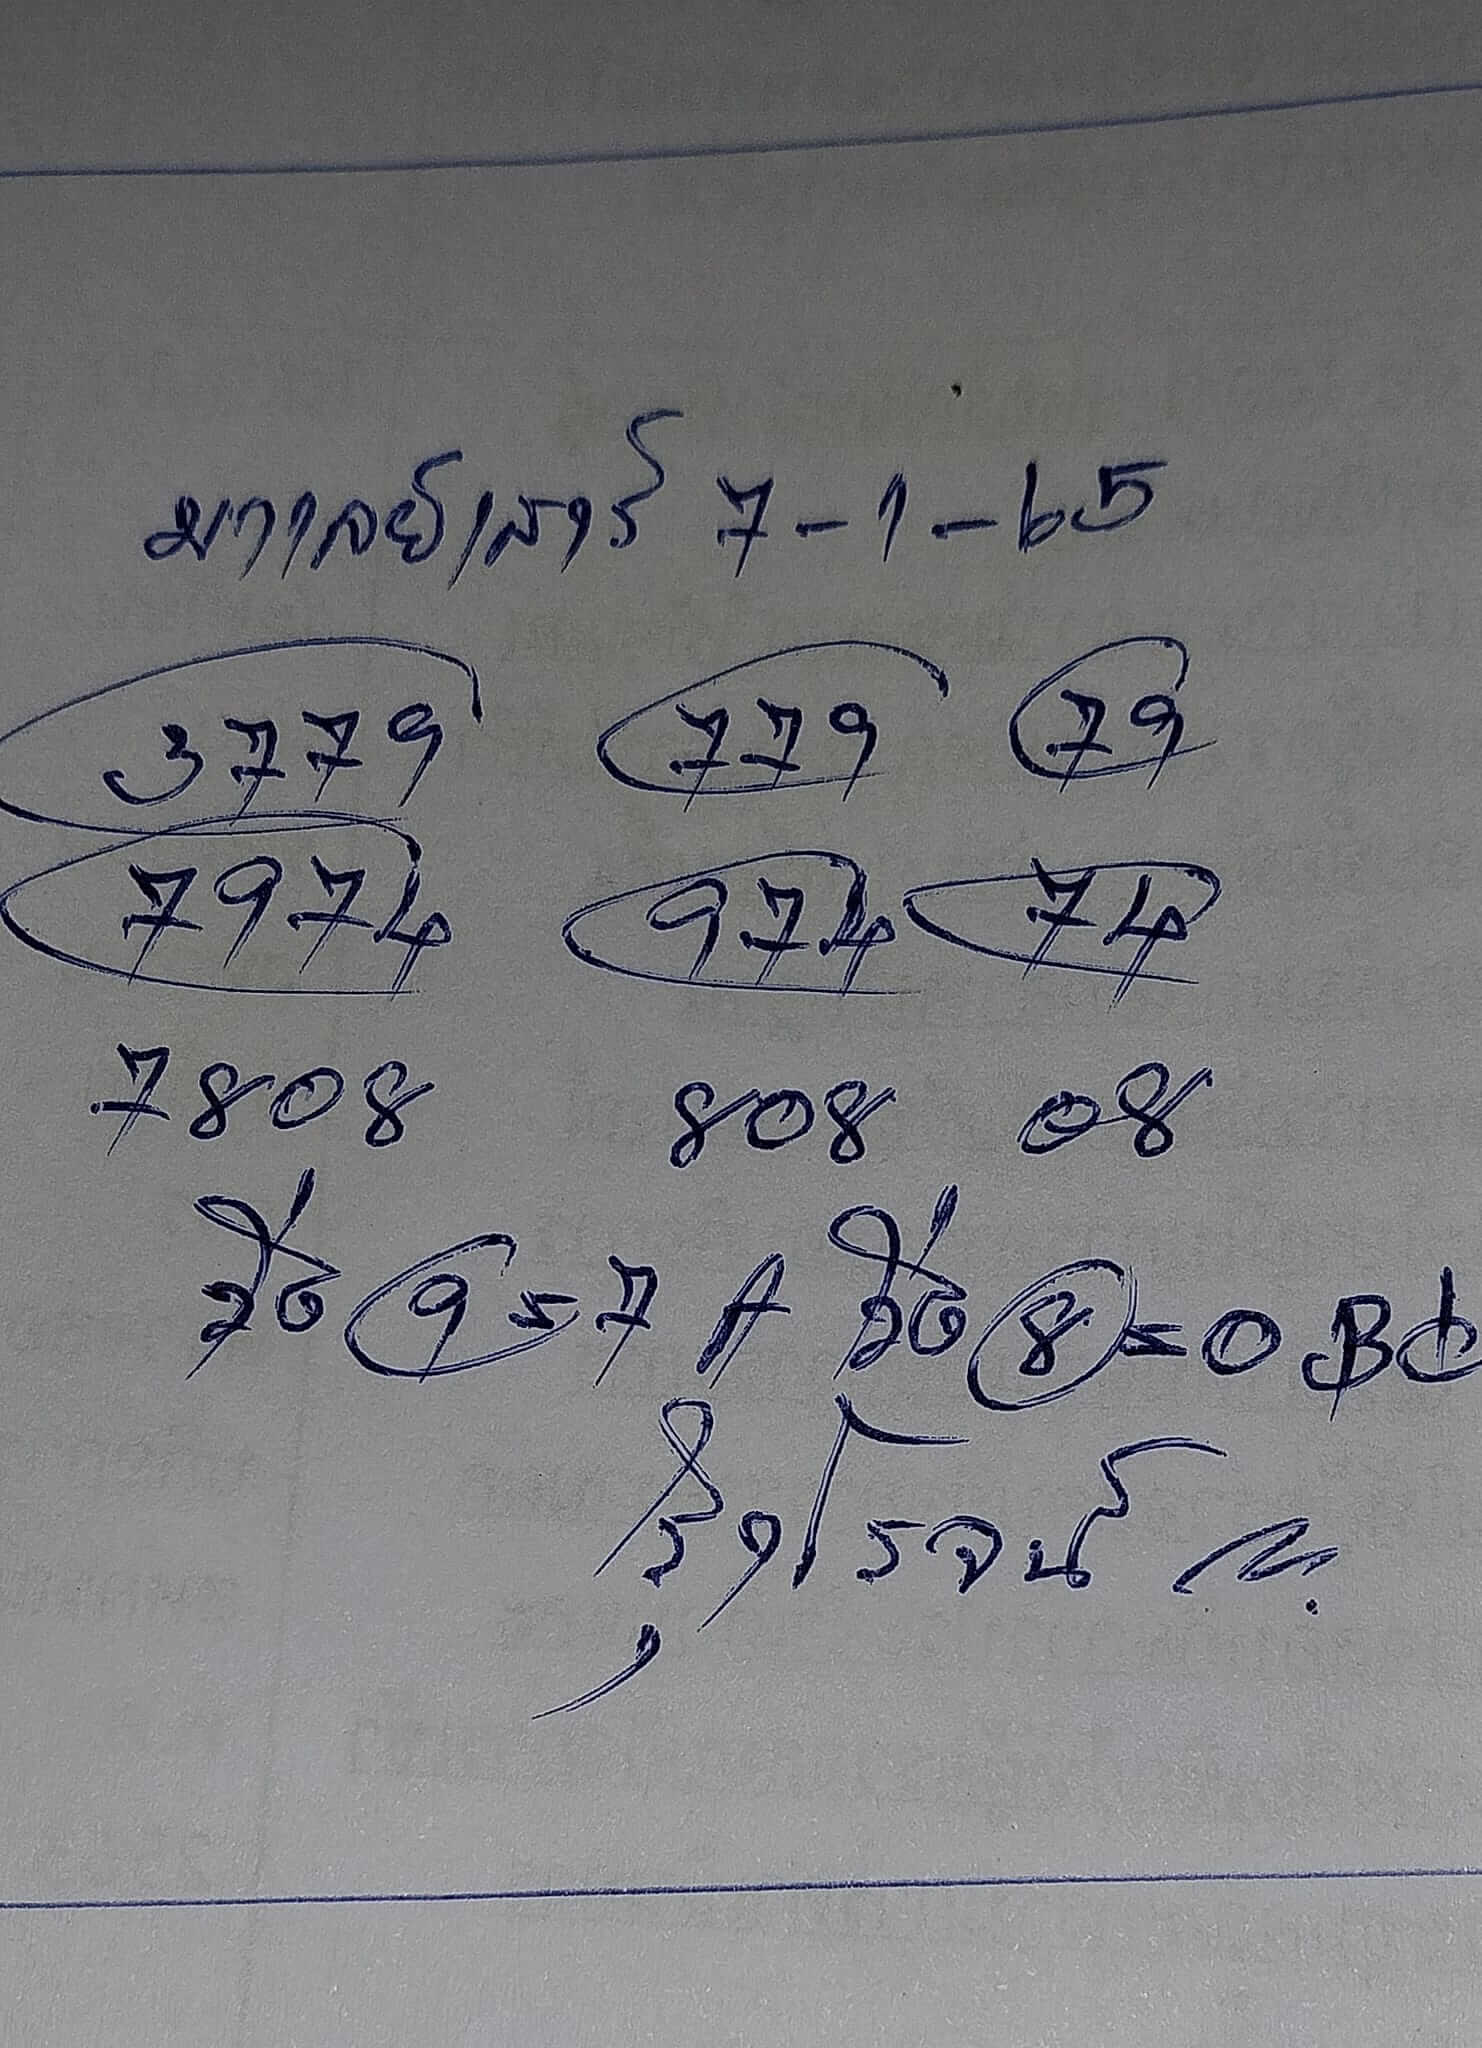 มาเลย์เสาร์ 7-1-65
3779 779 79
7974 974 74
7808 808 08
วิ่ง 9=7 A วิ่ง 8=0 BC
รุ่งโรจน์